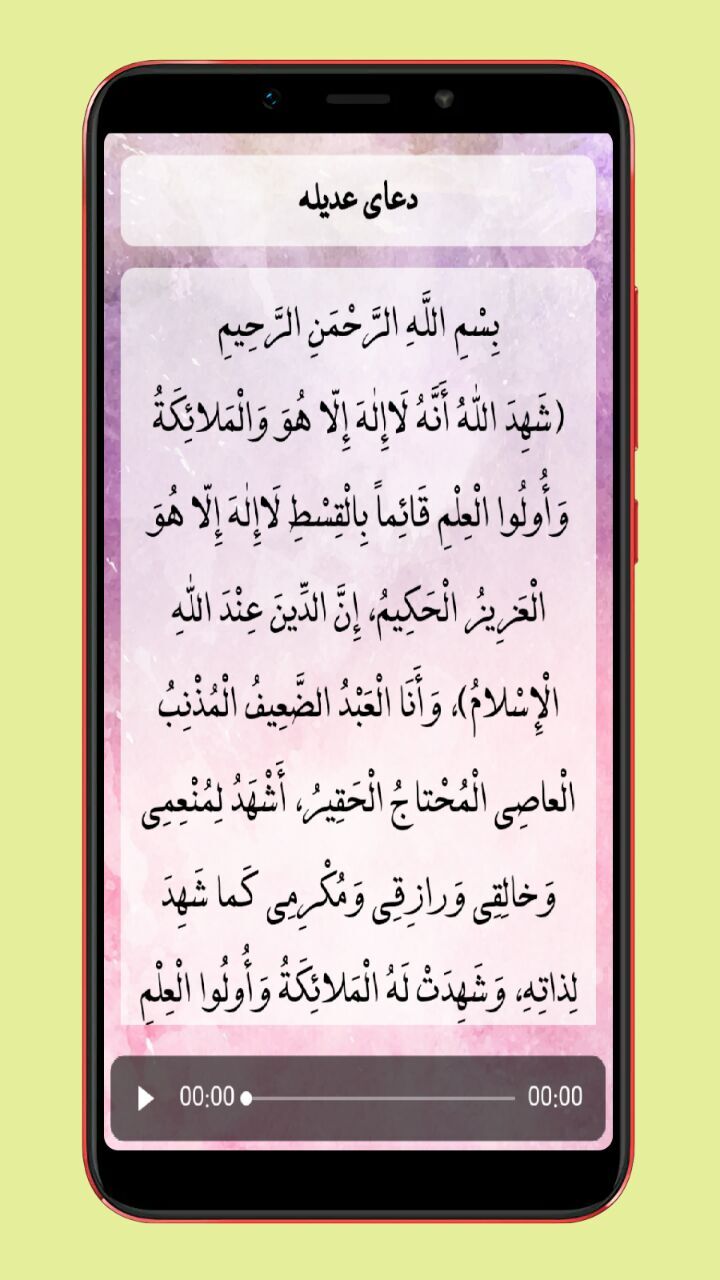 دعای عدیله
بِسْمِ اللَّهِ الرَّحْمَنِ الرَّحِيمِ
(شَهِدَ اللّٰهُ أَنَّهُ لَاإِلٰهَ إِلّا هُوَ وَالْمَلائِكَةُ
وَأُولُوا الْعِلْمِ قَائِماً بِالْقِسْطِ لَاإِلٰهَ إِلّا هُوَ
الْعَزِيزُ الْحَكِيمُ، إِنَّ الدِّينَ عِنْدَ اللّٰهِ
الْإِسْلامُ)، وَأَنَا الْعَبْدُ الضَّعِيفُ الْمُذْنِبُ
الْعاصِی الْمُحْتاجُ الْحَقِيرُ، أَشْهَدُ لِمُنْعِمِی
وَخالِقِی وَرازِقِی وَمُكْرِمِی كَما شَهِدَ
لِذاتِهِ، وَشَهِدَتْ لَهُ الْمَلائِكَةُ وَأُولُوا الْعِلْمِ
00:00 00:00